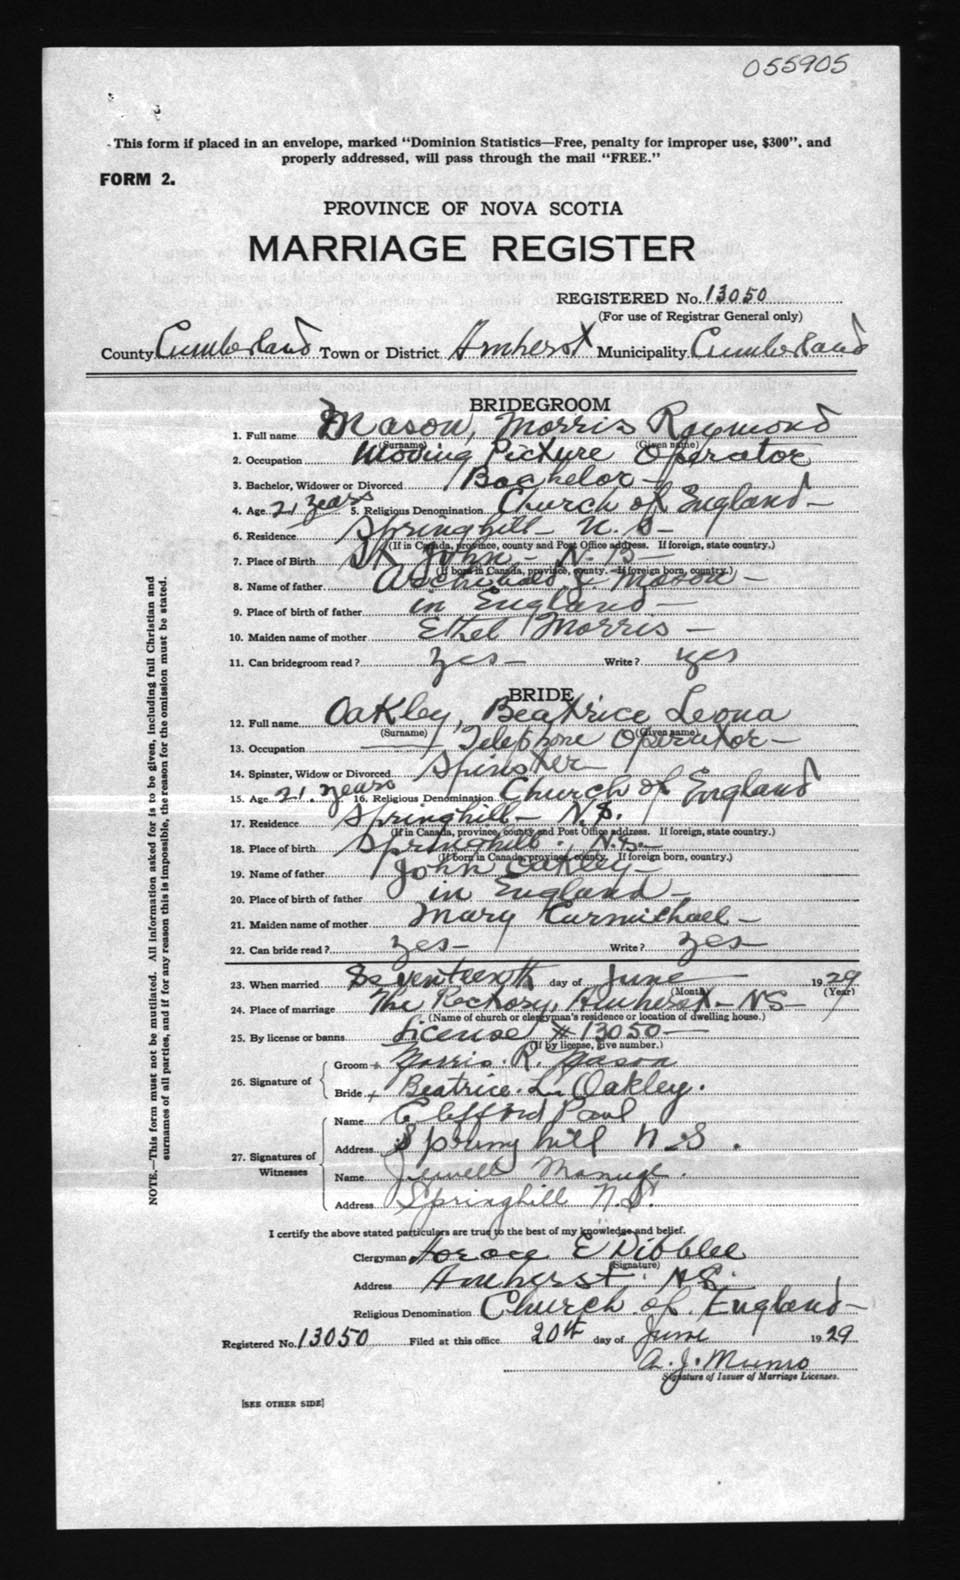 055905
This form if placed in an envelope, marked "Dominion Statistics—Free, penalty for improper use, $300", and
properly addressed, will pass through the mail "FREE."
FORM 2.
PROVINCE OF NOVA SCOTIA
MARRIAGE REGISTER
REGISTERED No. 13050
(For use of Registrar General only)
County Cumberland Town or District Amherst Municipality Cumberland
BRIDEGROOM
1. Full name Mason, Morris Raymond
(Surname) (Given name)
2. Occupation Moving Picture Operator
3. Bachelor, Widower or Divorced Bachelor —
4. Age 21 years 5. Religious Denomination Church of England —
6. Residence Springhill — N.S. —
(If in Canada, province, county and Post Office address. If foreign, state country.)
7. Place of Birth St John — N.B
(If born in Canada, province, county. If foreign born, country.)
8. Name of father Archibald J. Mason —
9. Place of birth of father in England —
10. Maiden name of mother Ethel Morris —
11. Can bridegroom read? yes — Write? yes
BRIDE
12. Full name Oakley, Beatrice Leona
(Surname) (Given name)
13. Occupation Telephone Operator —
14. Spinster, Widow or Divorced Spinster —
15. Age 21. years 16. Religious Denomination Church of England
17. Residence Springhill — N.S.
(If in Canada, province, county and Post Office address. If foreign, state country.)
18. Place of birth Springhill. N.S. —
(If born in Canada, province, county. If foreign born, country.)
19. Name of father John Oakley —
20. Place of birth of father in England —
21. Maiden name of mother Mary Carmichael —
22. Can bride read? yes — Write? yes —
23. When married Seventeenth day of June 1929
(Month) (Year)
24. Place of marriage The Rectory, Amherst — NS —
(Name of church or clergyman's residence or location of dwelling house.)
25. By license or banns License # 13050 —
(If by license, give number.)
26. Signature of Groom + Morris. R. Mason
Bride + Beatrice. L. Oakley.
27. Signatures of Witnesses Name Clifford Paul
Address Springhill N.S.
Name Jewell Manuge.
Address Springhill N.S.
I certify the above stated particulars are true to the best of my knowledge and belief.
Clergyman Horace E Dibblee
(Signature)
Address Amherst. N.S.
Religious Denomination Church of England —
Registered No. 13050 Filed at this office 20th day of June 1929
A. J. Munro
Signature of Issuer of Marriage Licenses.
[SEE OTHER SIDE]
NOTE.—This form must not be mutilated. All information asked for is to be given, including full Christian and
surnames of all parties, and if for any reason this is impossible, the reason for the omission must be stated.